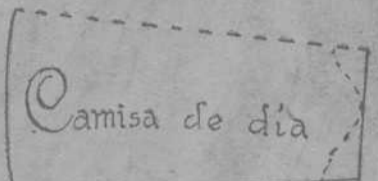 Camisa de día